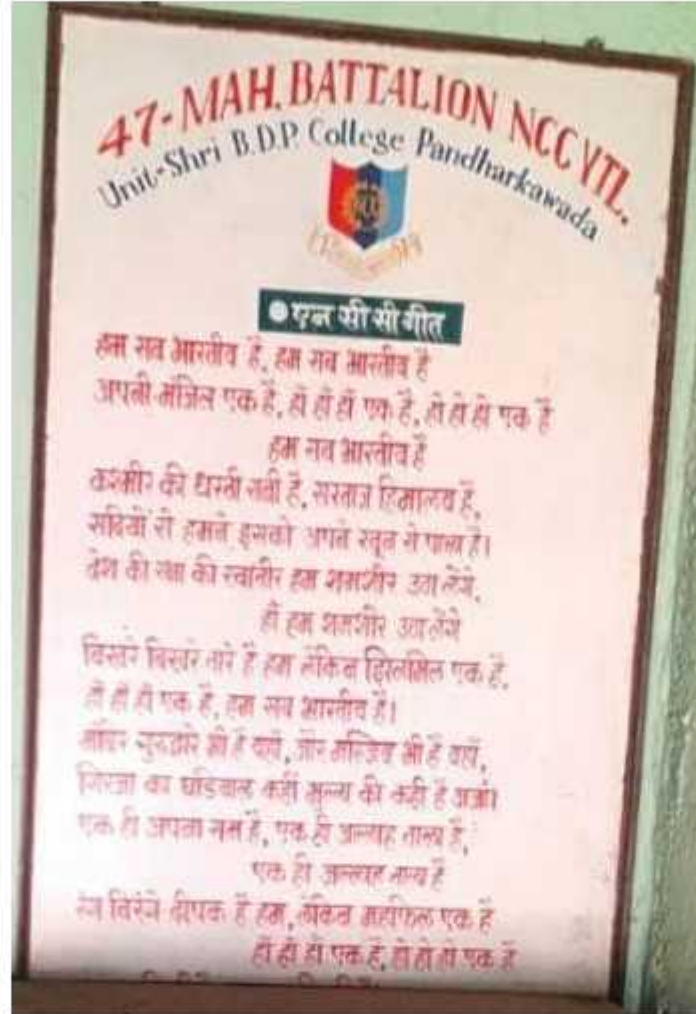 47-MAH. BATTALION NCC YTL.
Unit-Shri B.D.P. College Pandharkawada
एन सी सी गीत
हम सब भारतीय है, हम सब भारतीय है
अपनी मंजिल एक है, हाँ हाँ हाँ एक है, हो हो हो एक है
हम सब भारतीय है
कश्मीर की धरती रानी है, सरताज हिमालय है,
सदियों से हमने इसको अपने खून से पाला है।
देश की रक्षा की खातीर हम शमशीर उठा लेंगे,
हाँ हम शमशीर उठा लेंगे
बिखरे बिखरे तारे है हम लेकिन झिलमिल एक है,
हाँ हाँ हाँ एक है, हम सब भारतीय है।
गुरुद्वारे भी है यहाँ, और मस्जिद भी है यहाँ,
गिरजा का घड़ियाल कहीं मुल्ला की कहीं है अजां।
एक ही अपना राम है, एक ही अल्लाह ताला है,
एक ही अल्लाह ताला है
रंग बिरंगे दीपक है हम, लेकिन महफिल एक है
हाँ हाँ हाँ एक है, हो हो हो एक है